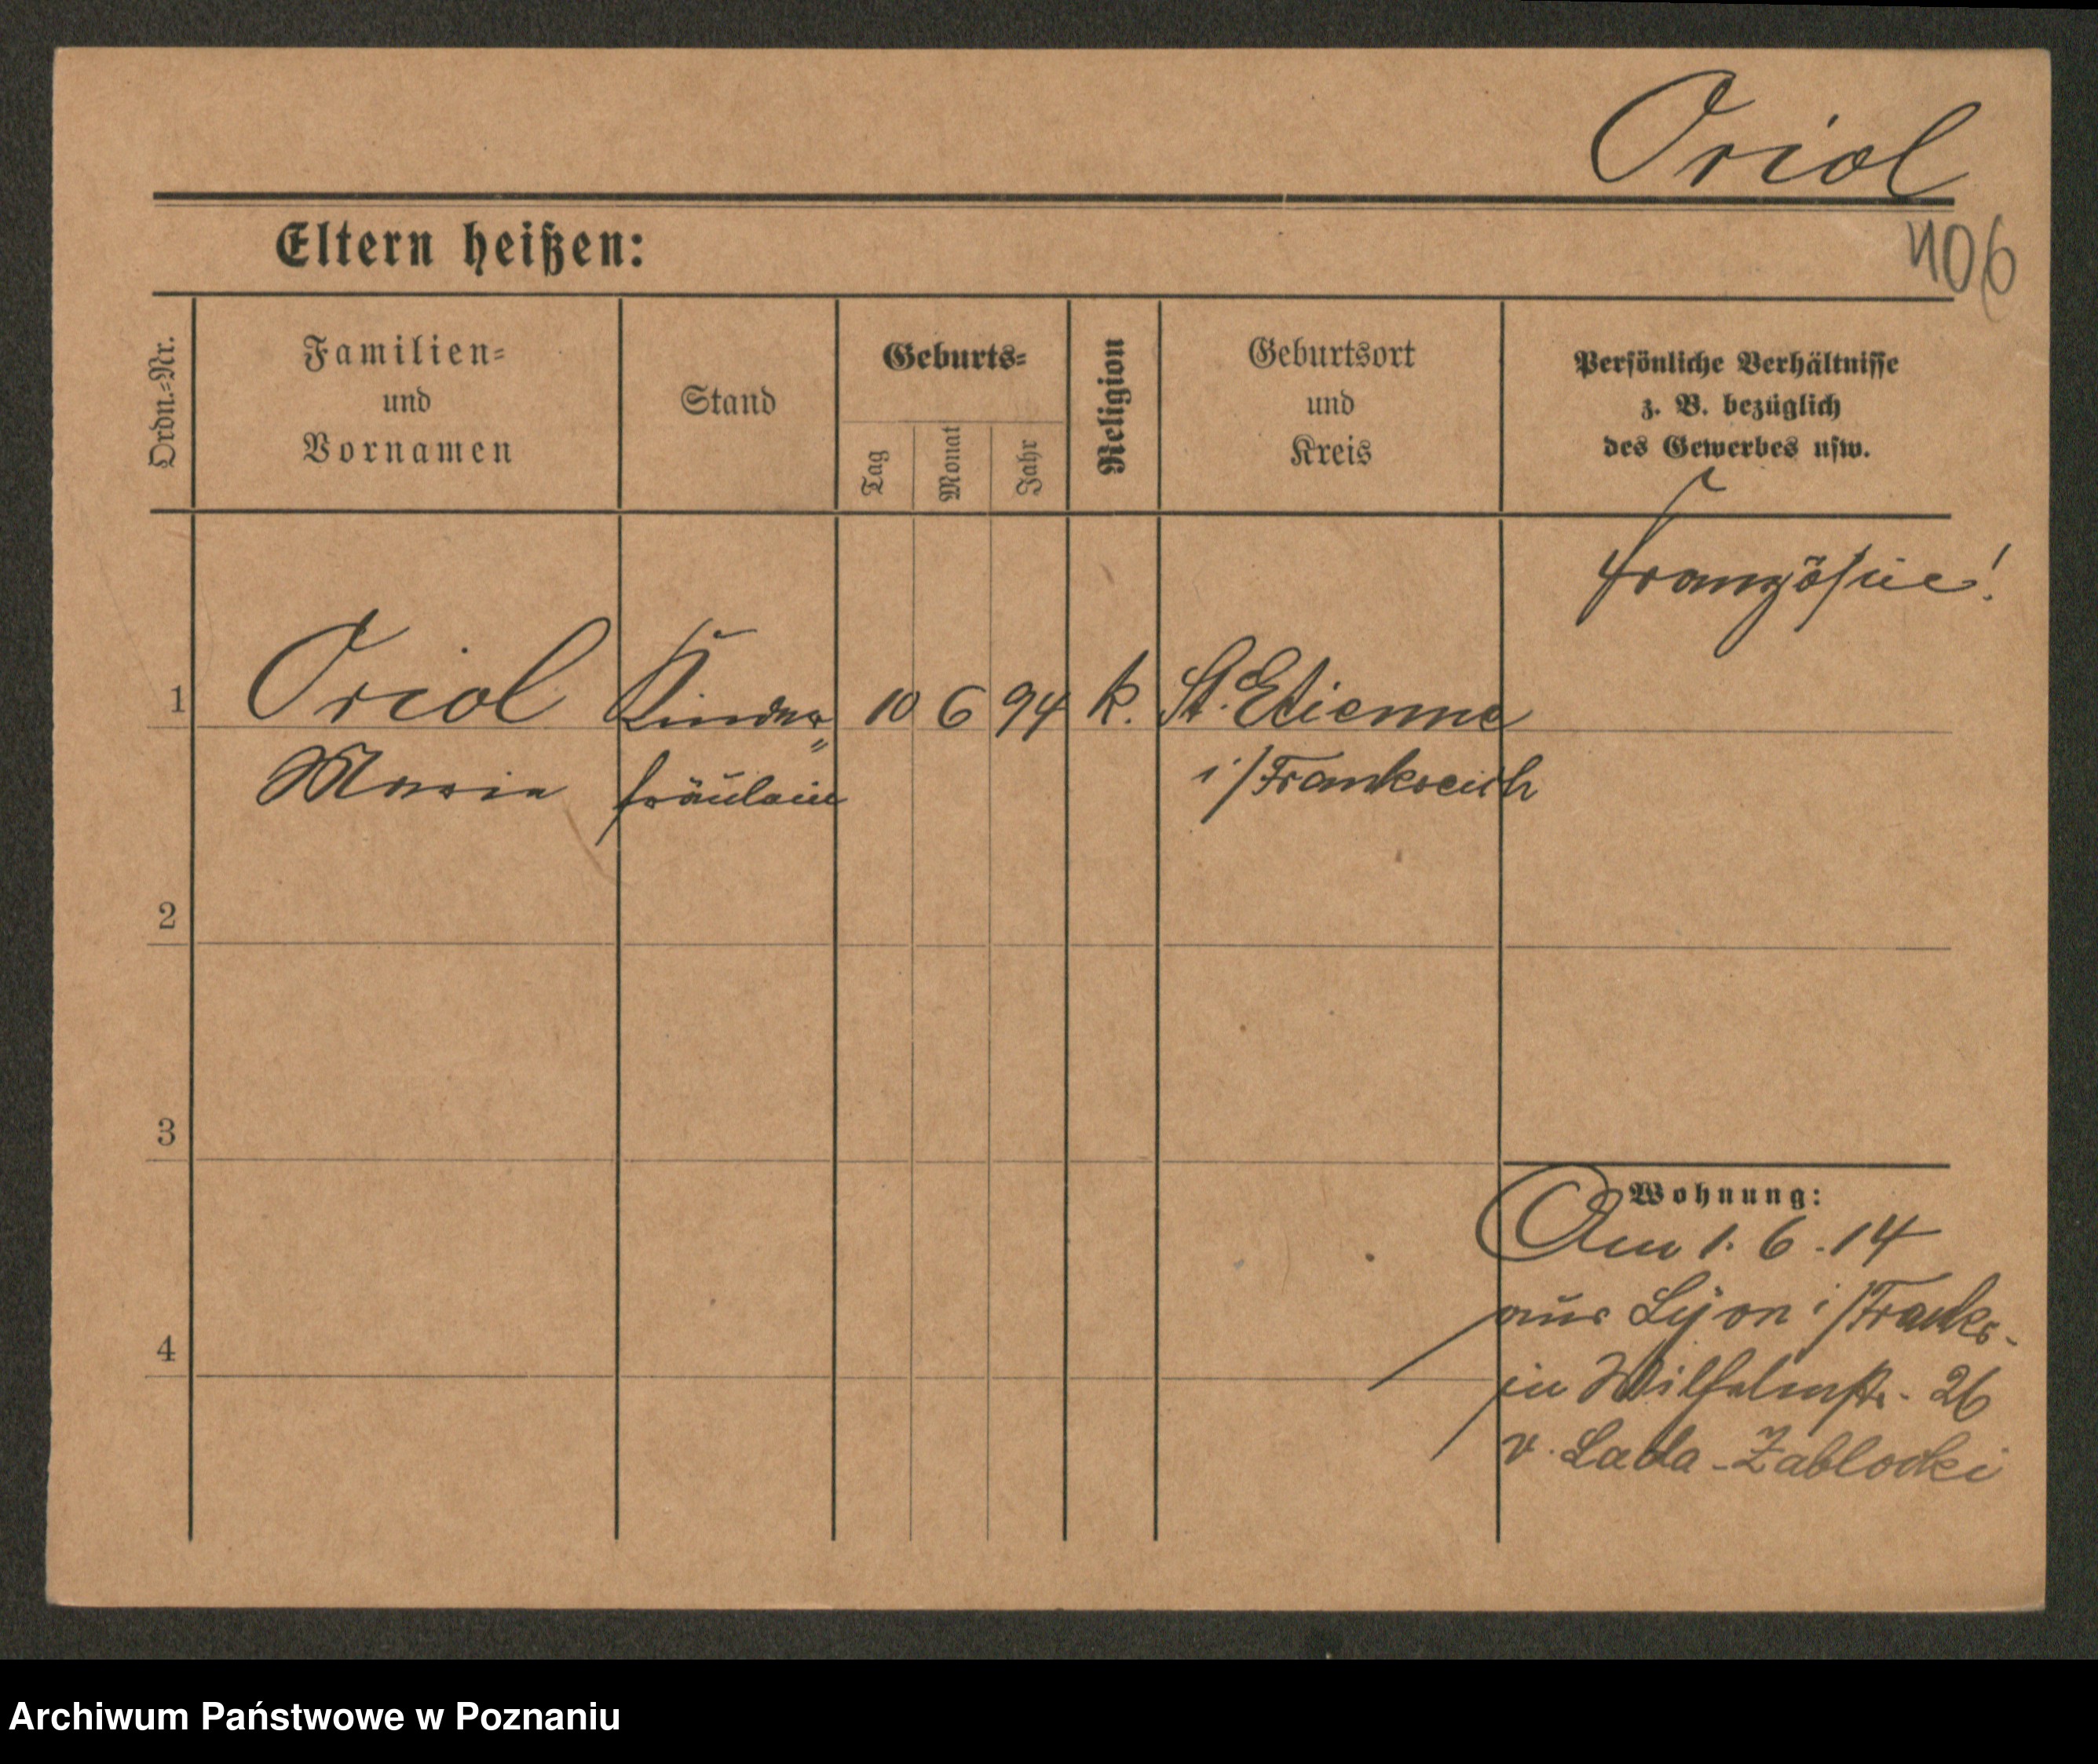 Oriol
406
Eltern heißen:
Ordn.-Nr.
Familien-
und
Vornamen
Stand
Geburts-
Tag
Monat
Jahr
Religion
Geburtsort
und
Kreis
Persönliche Verhältnisse
z. B. bezüglich
des Gewerbes usw.
Französin!
1 Oriol Kinder 10 6 94 k. St. Etienne
Maria fräulein i/Frankreich
2
3
4
Wohnung:
Am 1. 6. 14
aus Lyon i/Frankr.
in Wilhelmstr. 26
v. Lada-Zablocki
Archiwum Państwowe w Poznaniu